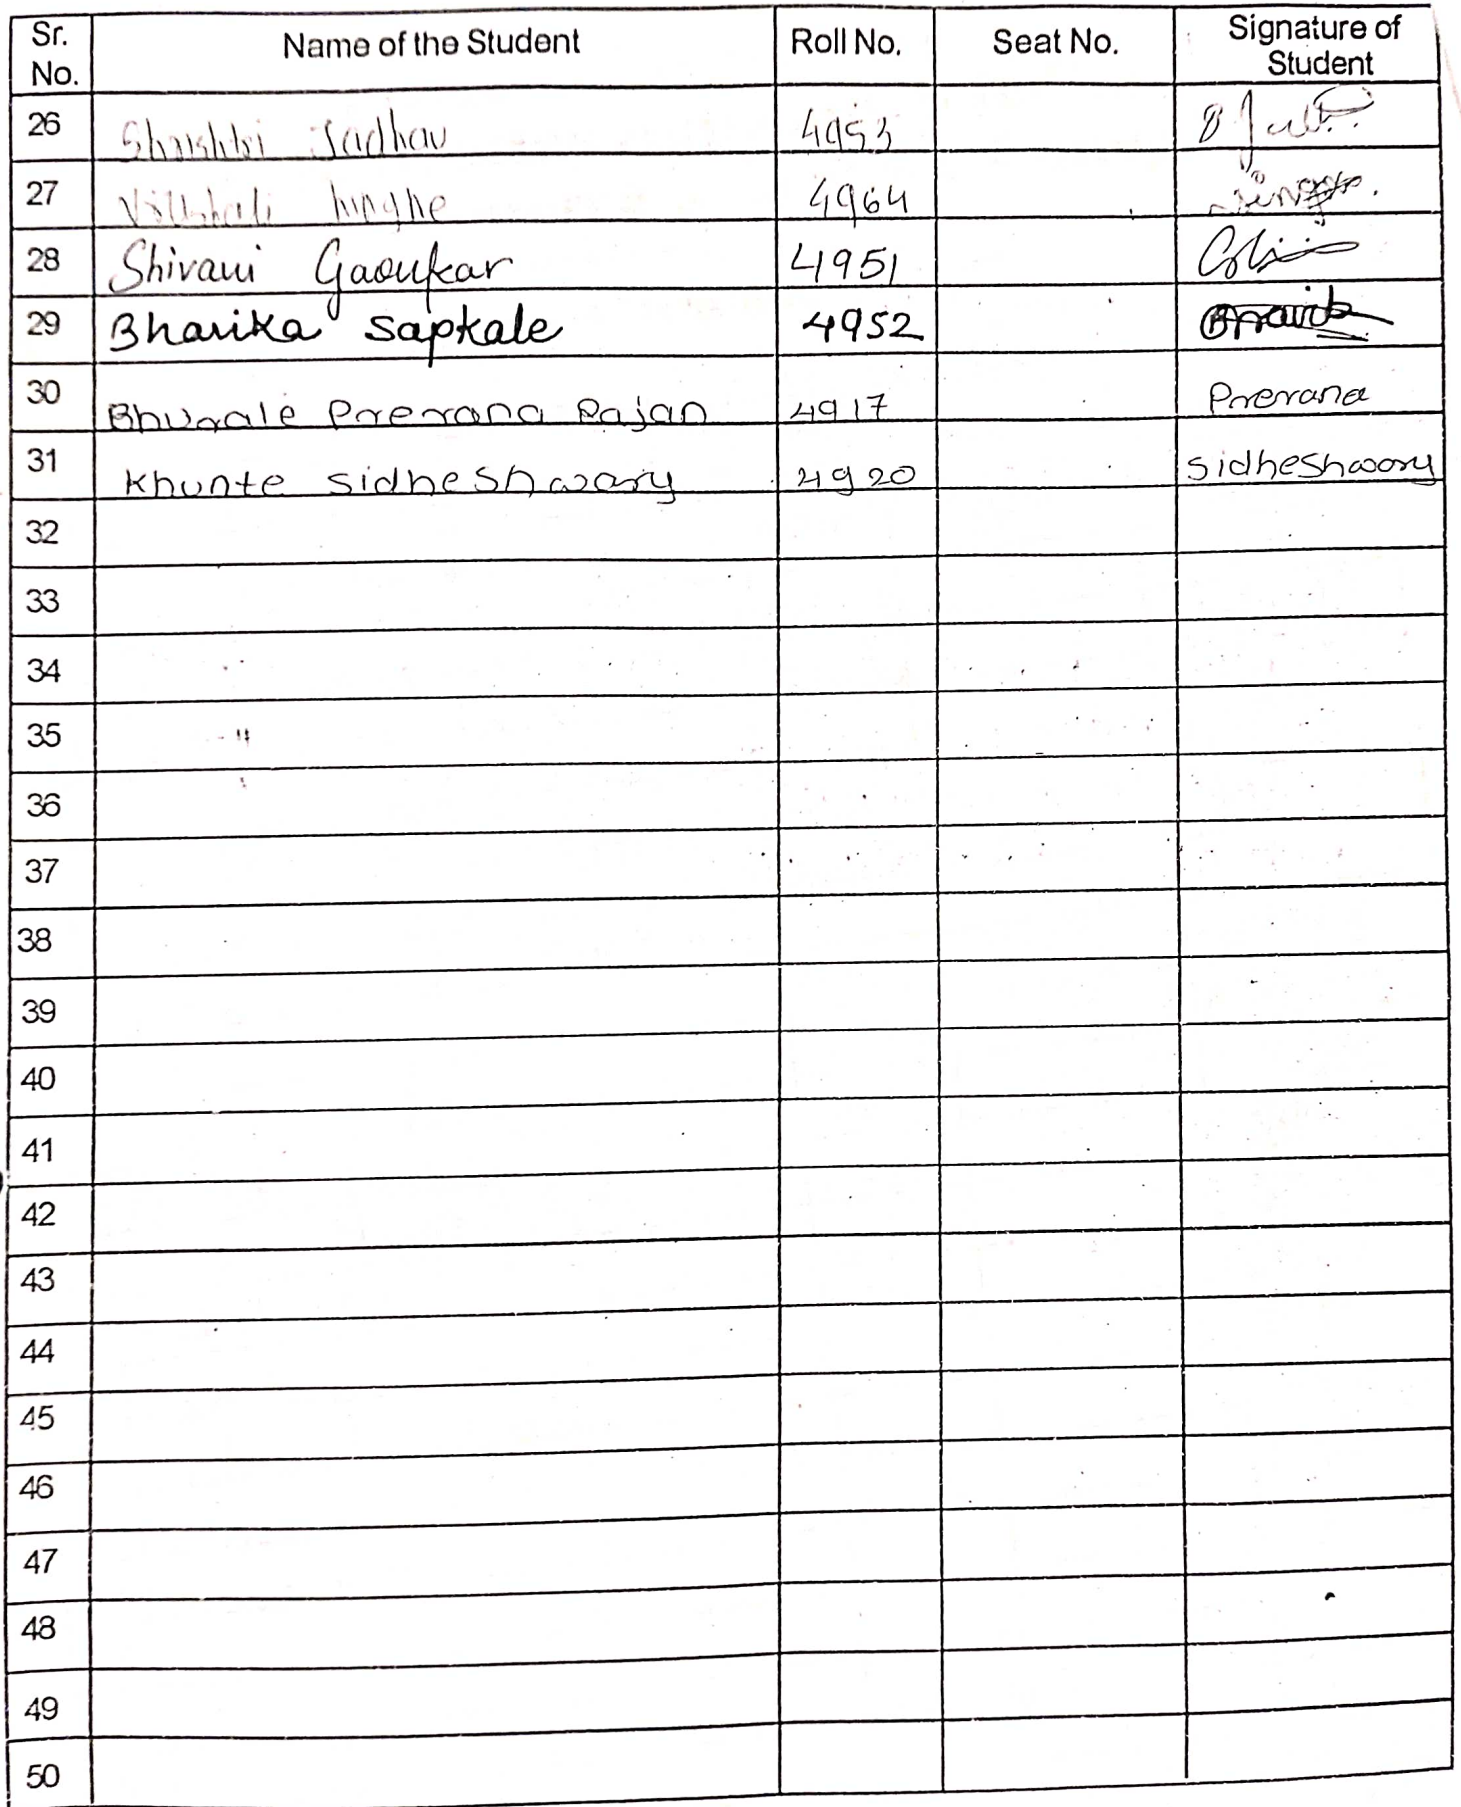 Sr. No. Name of the Student Roll No. Seat No. Signature of Student
26 Jadhav 4953
27 4964
28 Shivani Gaonkar 4951
29 Bhavika Sapkale 4952
30 Bhurale Prerana Rajan 4917 Prerana
31 Khunte Sidheshwary 4920 Sidheshwary
32
33
34
35
36
37
38
39
40
41
42
43
44
45
46
47
48
49
50